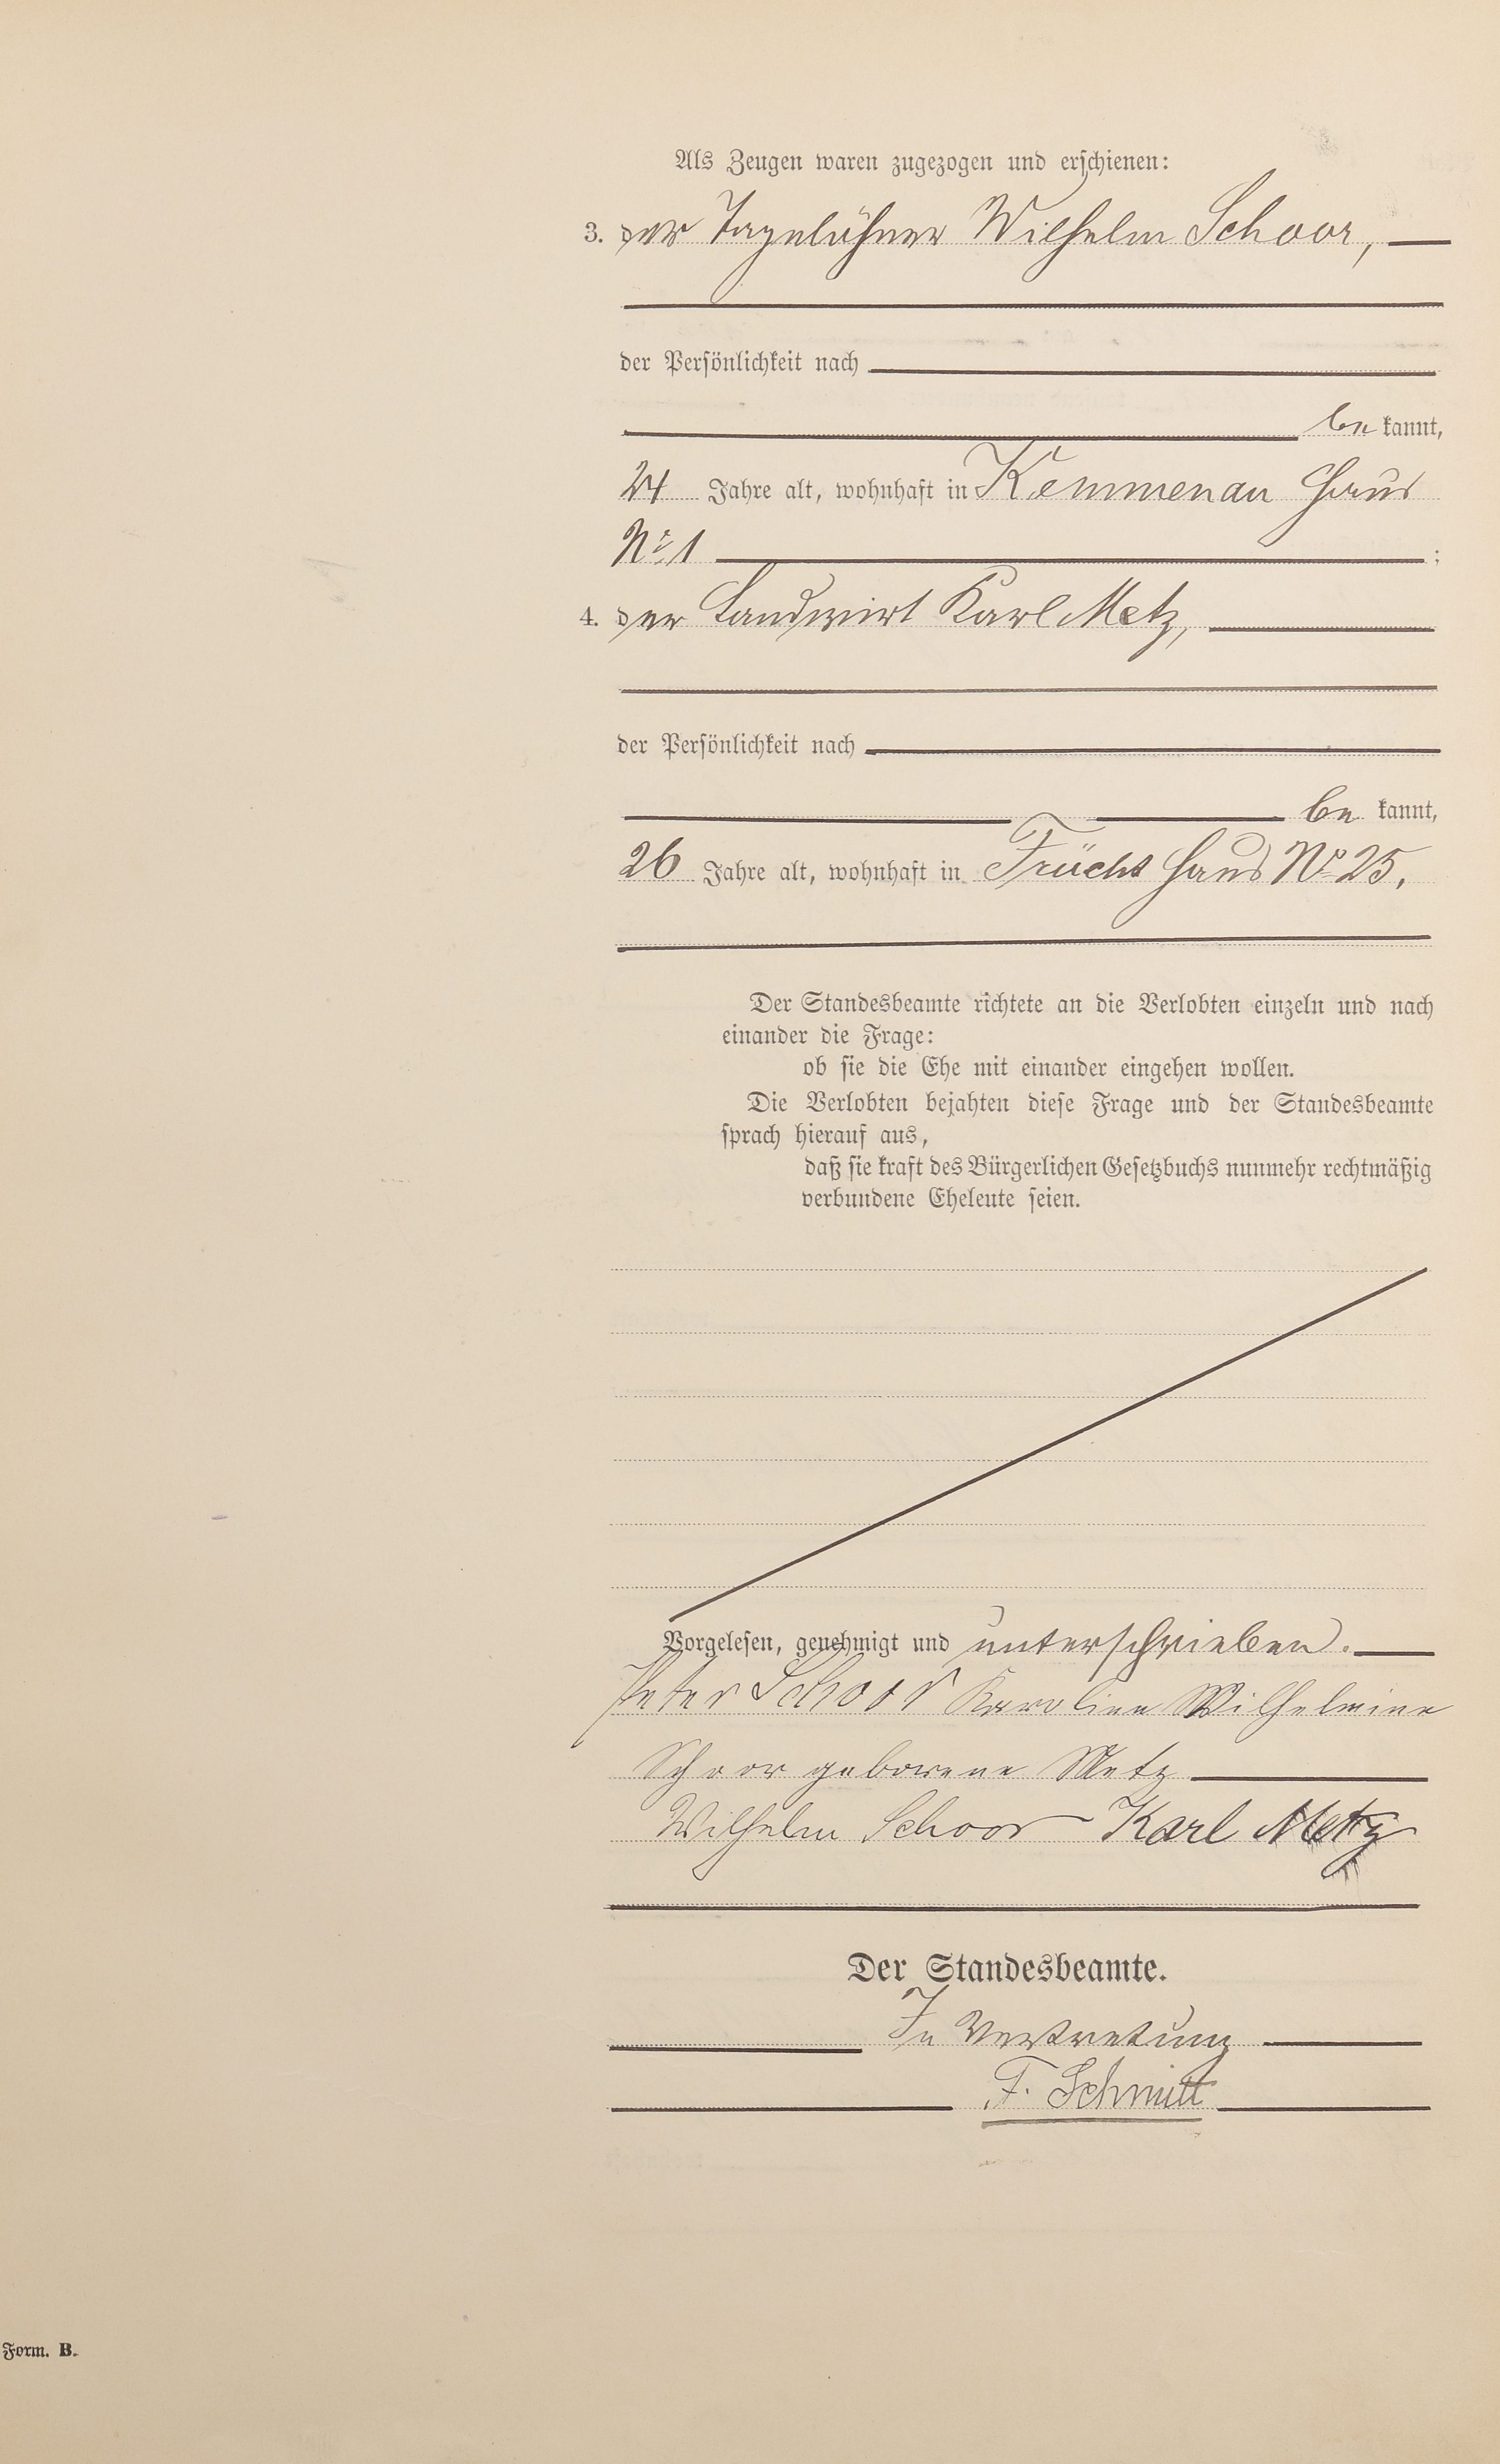 Als Zeugen waren zugezogen und erschienen:
3. der Tagelöhner Wilhelm Schoor,
der Persönlichkeit nach
be kannt,
24 Jahre alt, wohnhaft in Kemmenau Haus
No 1 ;
4. der Landwirt Karl Metz,
der Persönlichkeit nach
be kannt,
26 Jahre alt, wohnhaft in Frücht Haus No 25.
Der Standesbeamte richtete an die Verlobten einzeln und nach
einander die Frage:
ob sie die Ehe mit einander eingehen wollen.
Die Verlobten bejahten diese Frage und der Standesbeamte
sprach hierauf aus,
daß sie kraft des Bürgerlichen Gesetzbuchs nunmehr rechtmäßig
verbundene Eheleute seien.
Vorgelesen, genehmigt und unterschrieben.
Peter Schoor Karoline Wilhelmine
Schoor geborene Metz
Wilhelm Schoor Karl Metz
Der Standesbeamte.
In Vertretung
F. Schmitt
Form. B.